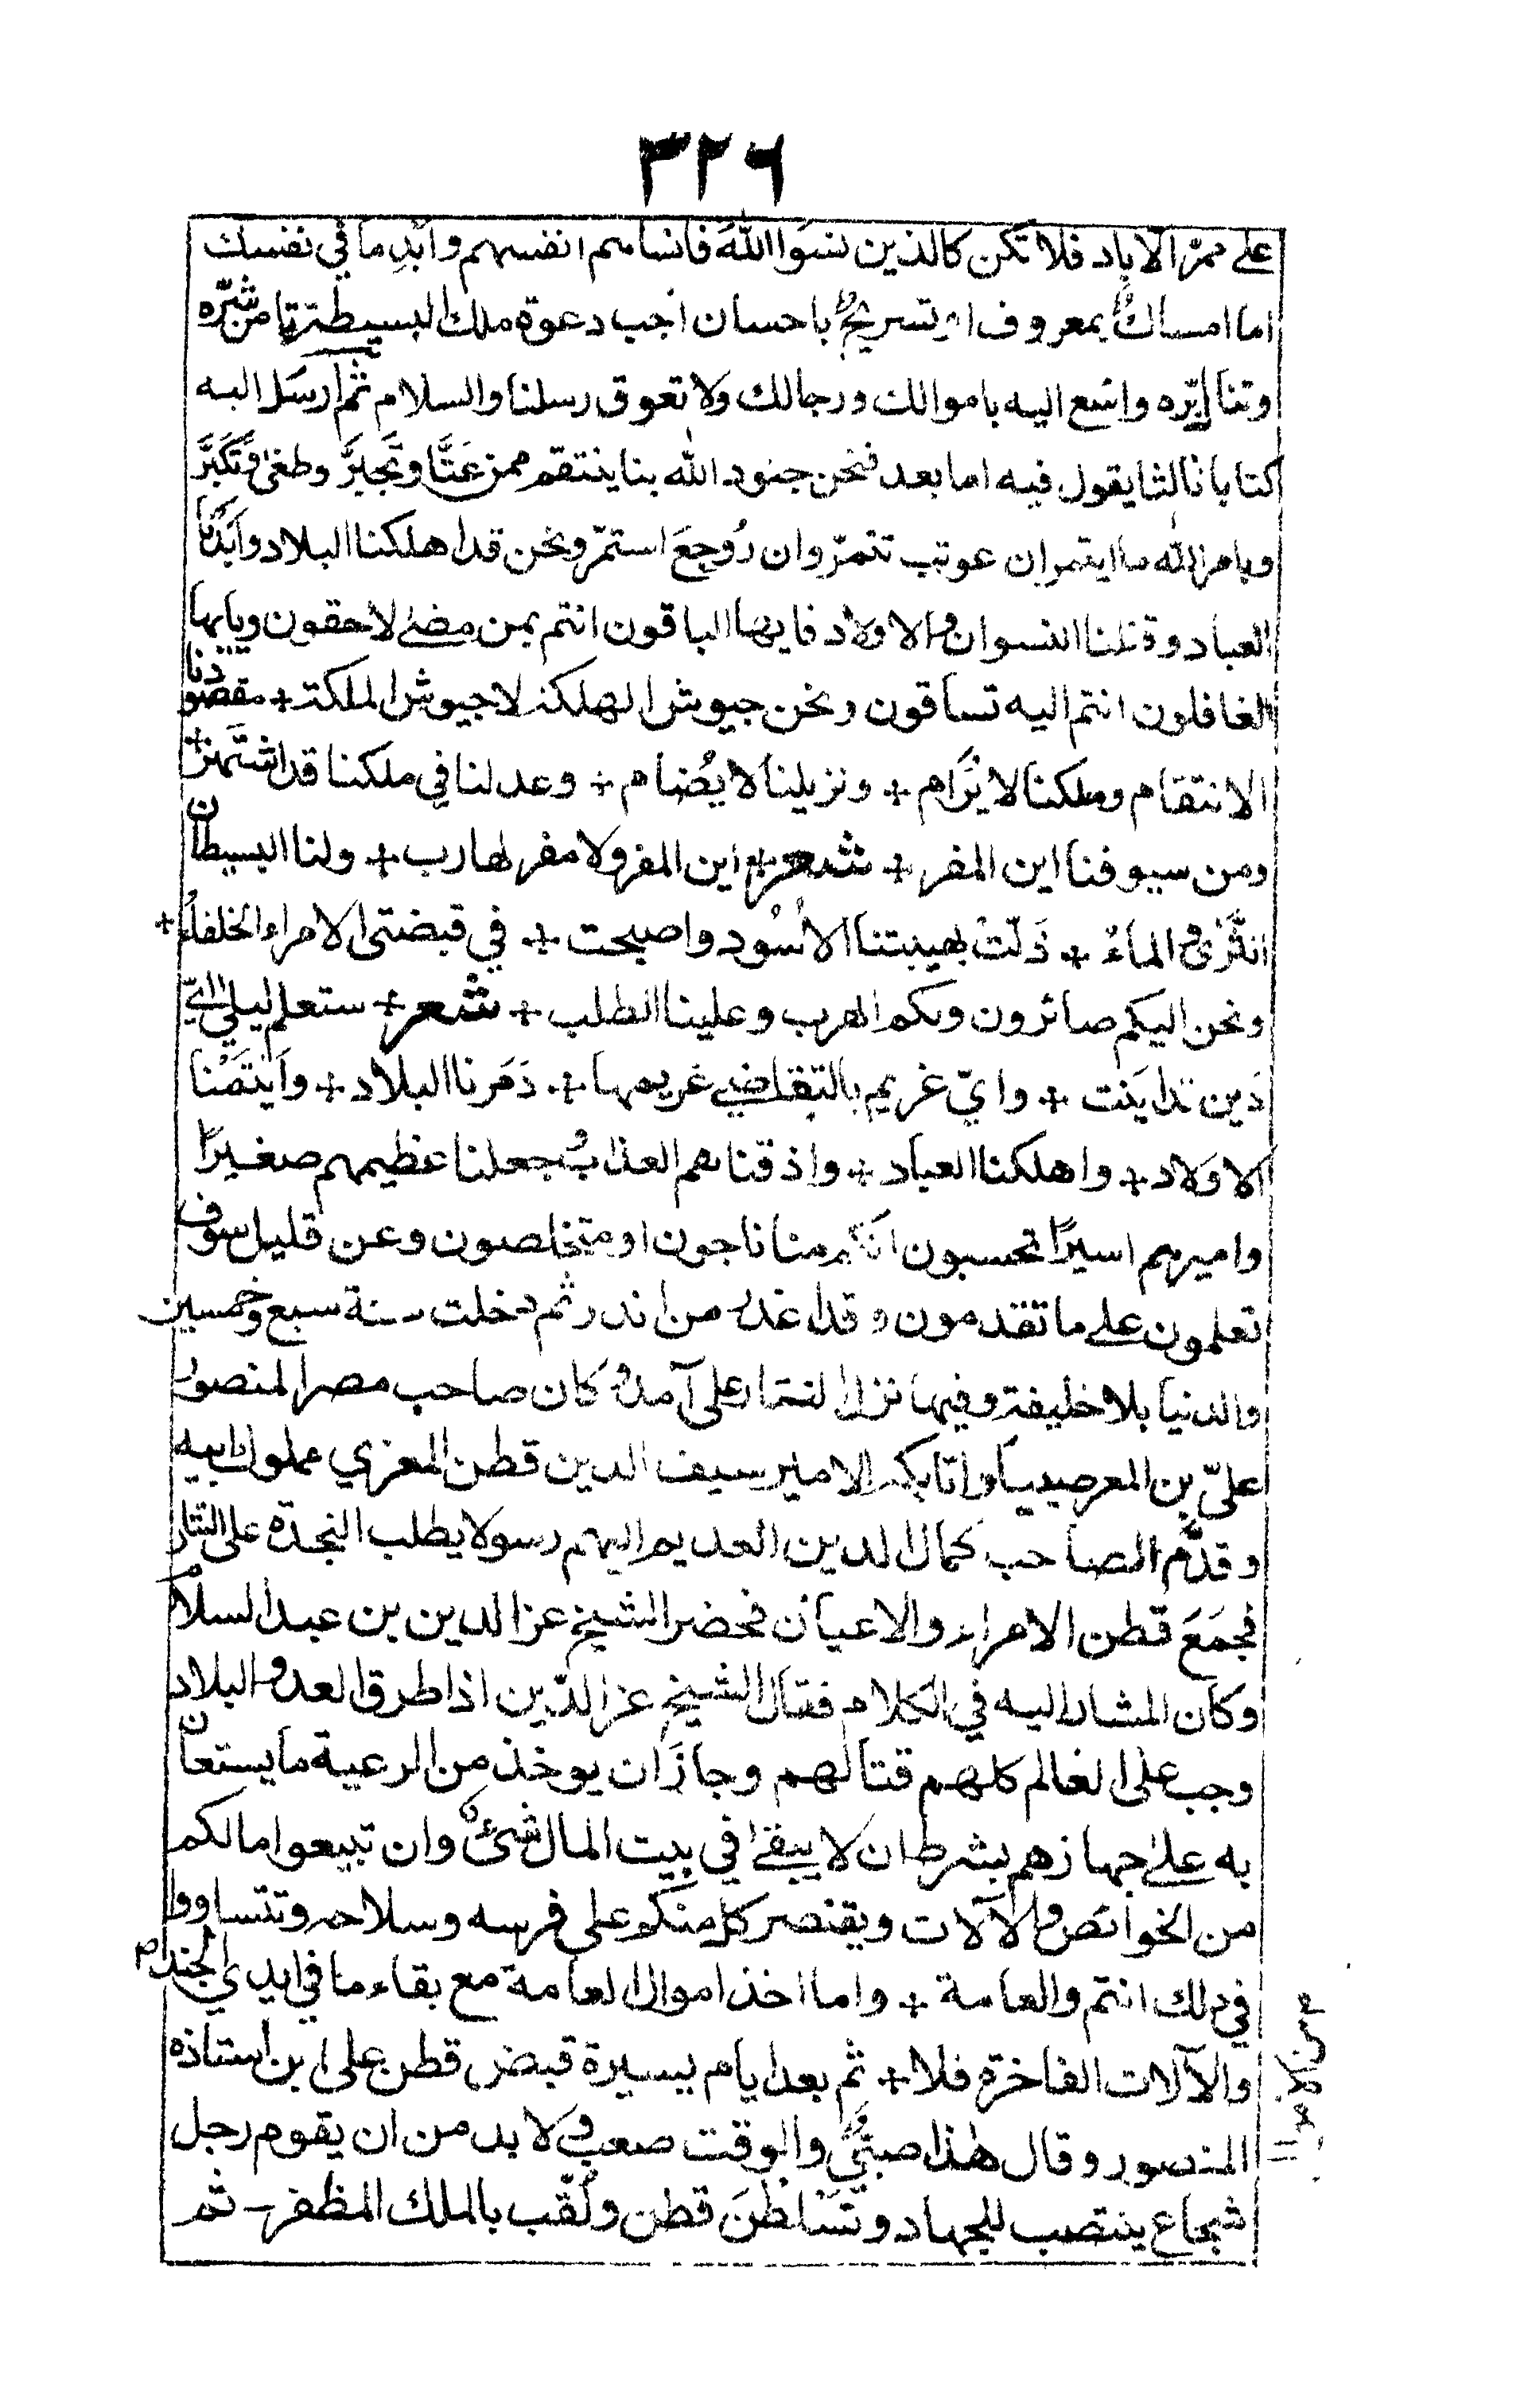 ٣٢٦
على ممر الاباد فلا تكن كالذين نسوا الله فانساهم انفسهم وابد ما في نفسك
اما امساك بمعروف او تسريح باحسان اجب دعوة ملك البسيطة تامن شره
وتنل بره واسع اليه باموالك ورجالك ولا تعوق رسلنا والسلام ثم ارسل اليه
كتابا ثالثا يقول فيه اما بعد فنحن جنود الله بنا ينتقم ممن عتا وتجبر وطغى وتكبر
وبامر الله ما ايتمر ان عوتب تنمر وان روجع استمر ونحن قد اهلكنا البلاد وابدنا
العباد وقتلنا النسوان والاولاد فايها الباقون انتم بمن مضى لاحقون ويايها
الغافلون انتم اليه تساقون ونحن جيوش الهلكة لا جيوش الملكة + مقصودنا
الانتقام وملكنا لا يرام + ونزيلنا لا يضام + وعدلنا في ملكنا قد اشتهر +
ومن سيوفنا اين المفر + شعر + اين المفر ولا مفر لهارب + ولنا البسيطان
الثرى والماء + ذلت لهيبتنا الاسود واصبحت + في قبضتى الامراء والخلفاء +
ونحن اليكم صائرون ولكم الهرب وعلينا الطلب + شعر + ستعلم ليلى اي
دين تداينت + واي غريم بالتقاضي غريمها + دمرنا البلاد + وايتمنا
الاولاد + واهلكنا العباد + واذقناهم العذاب وجعلنا عظيمهم صغيرا
واميرهم اسيرا تحسبون انكم منا ناجون او متخلصون وعن قليل سوف
تعلمون على ما تقدمون وقد اعذر من انذر ثم دخلت سنة سبع وخمسين
والدنيا بلا خليفة وفيها نزل التتار على آمد وكان صاحب مصر المنصور
علي بن المعز صبيا واتابكه الامير سيف الدين قطن المعزي مملوك ابيه
وقدم الصاحب كمال الدين العديم اليهم رسولا يطلب النجدة على التتار
فجمع قطن الامراء والاعيان فحضر الشيخ عز الدين بن عبد السلام
وكان المشار اليه في الكلام فقال الشيخ عز الدين اذا طرق العدو البلاد
وجب على العالم كلهم قتالهم وجاز ان يوخذ من الرعية ما يستعان
به على جهازهم بشرط ان لا يبقى في بيت المال شئ وان تبيعوا مالكم
من الخوائص والآلات ويقتصر كل منكم على فرسه وسلاحه وتتساووا
في ذلك انتم والعامة + واما اخذ اموال العامة مع بقاء ما في ايدي الجند
والآلات الفاخرة فلا + ثم بعد ايام يسيرة قبض قطن على ابن استاذه
المنصور وقال هذا صبي والوقت صعب ولا بد من ان يقوم رجل
شجاع ينتصب للجهاد وتسلطن قطن ولقب بالملك المظفر ثم